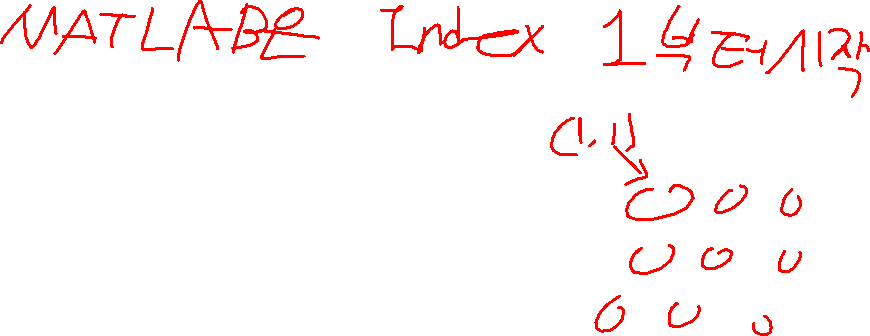 MATLAB은 Index 1부터 시작
(1,1)
0 0 0
0 0 0
0 0 0